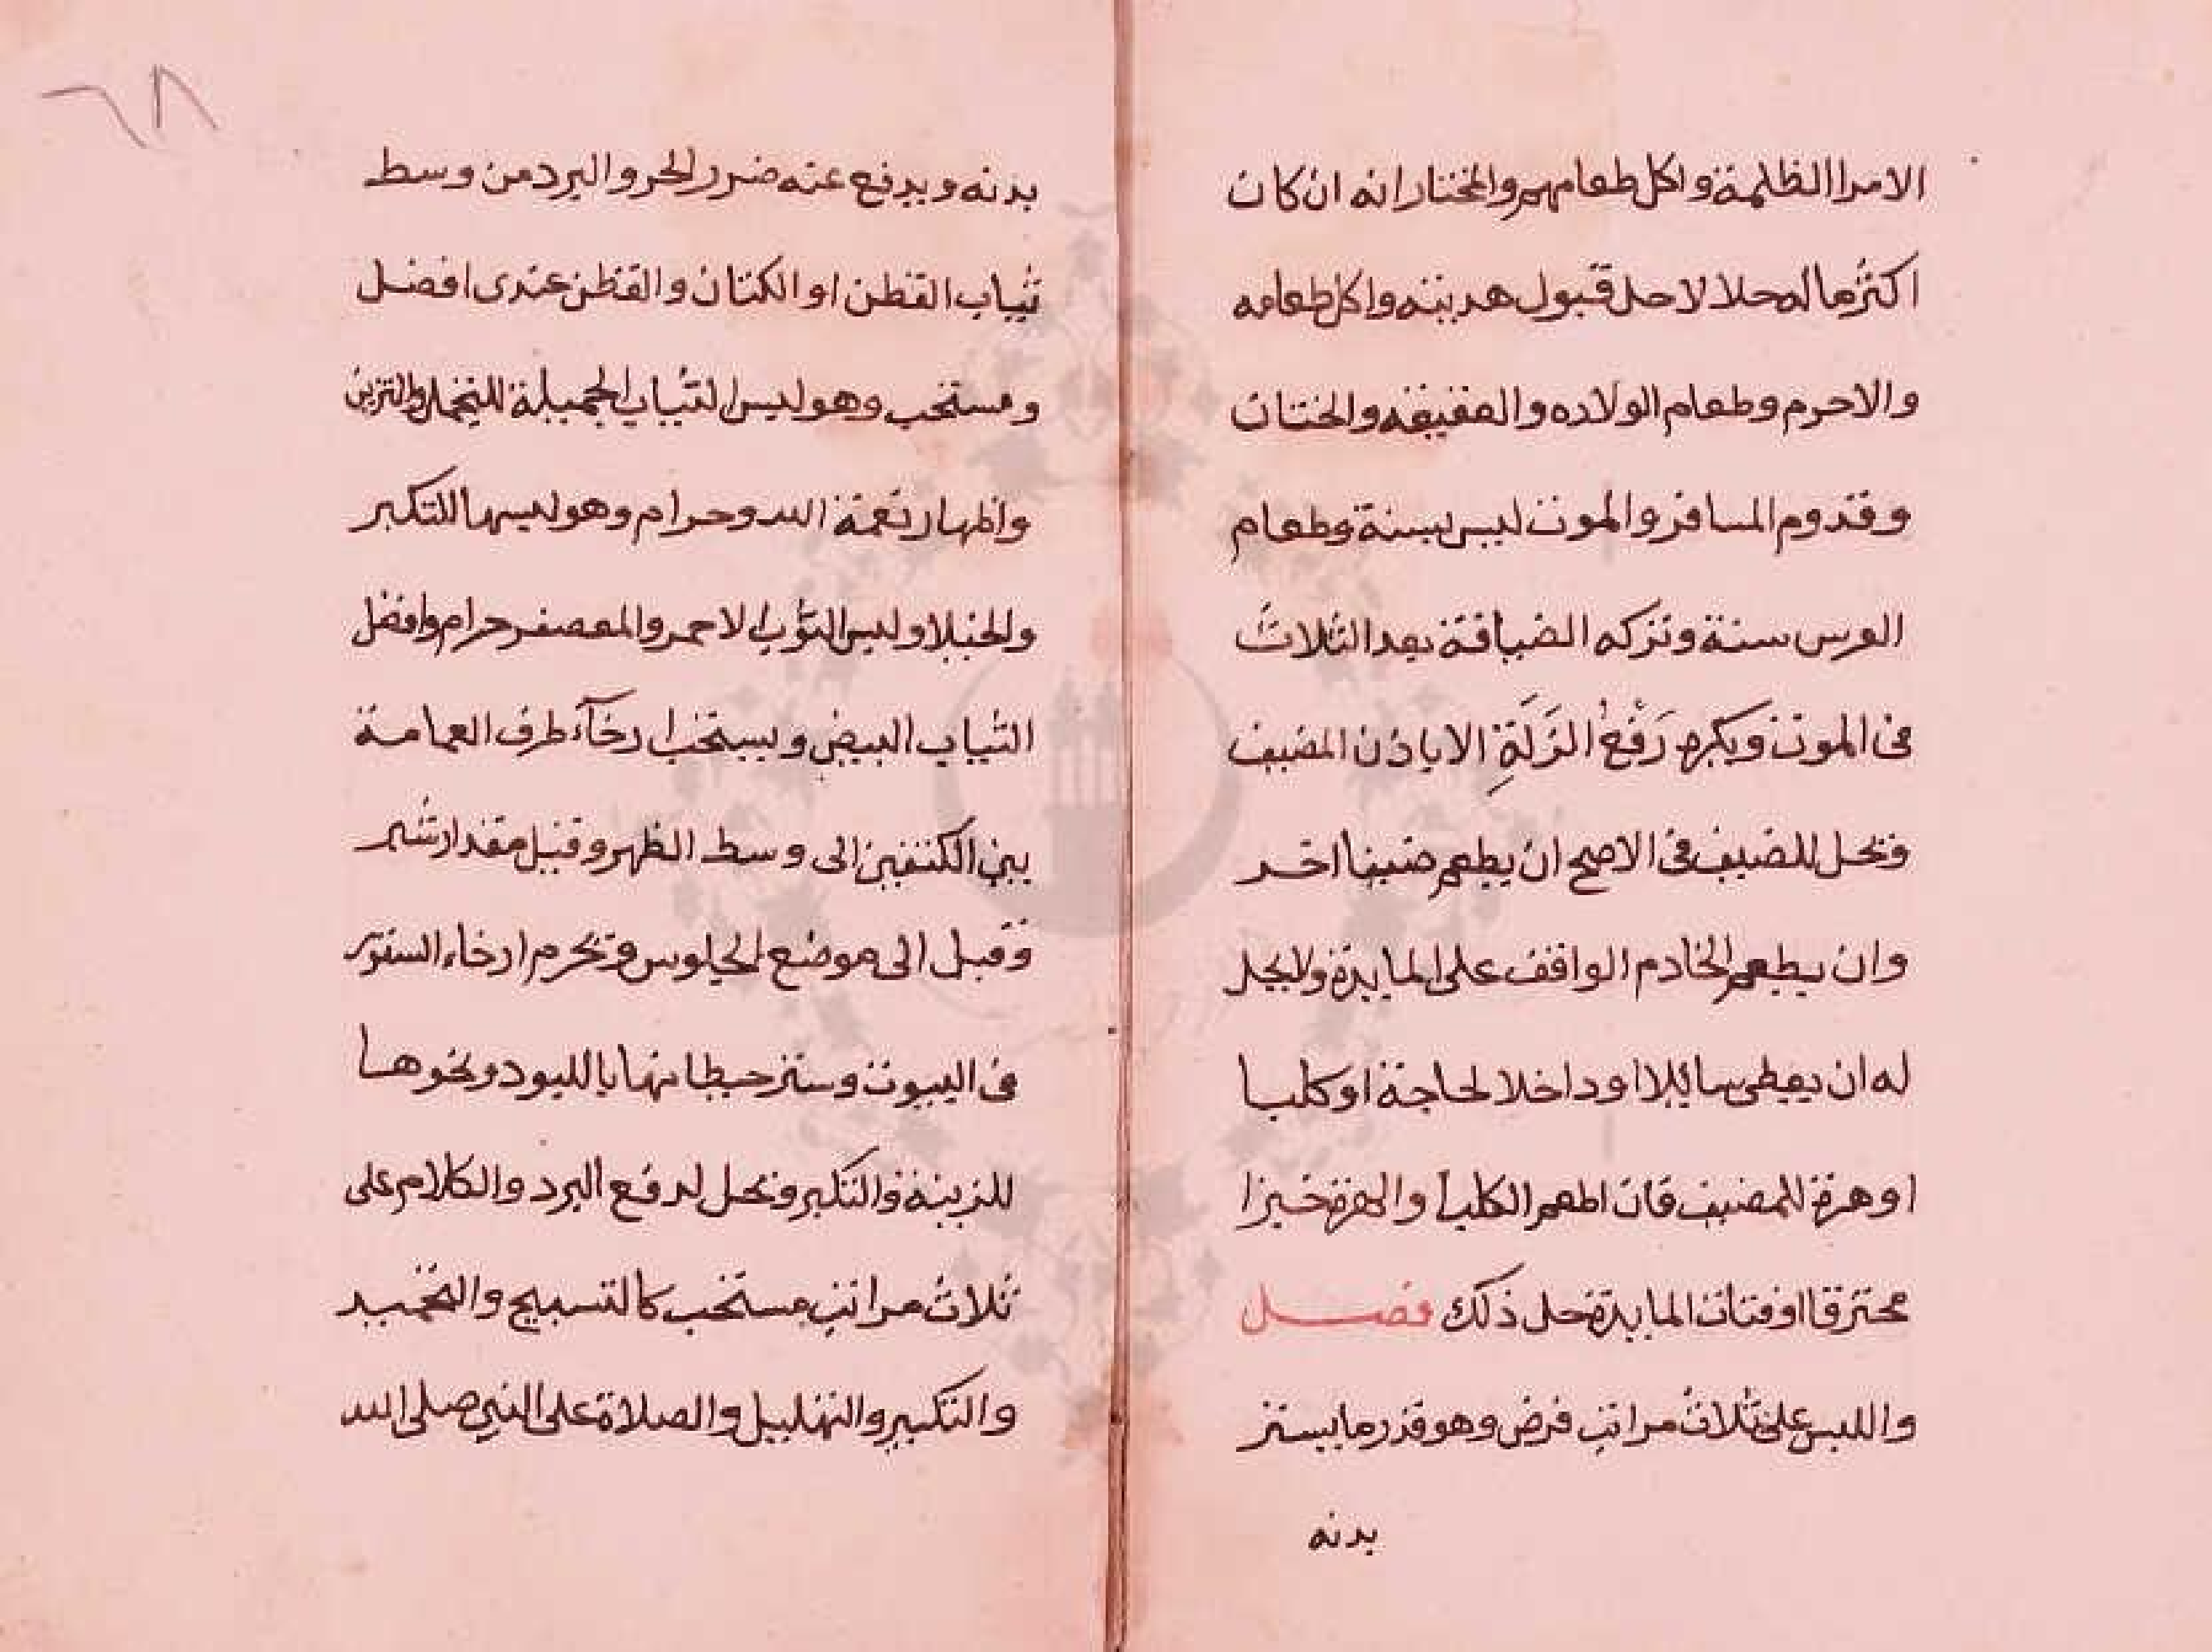 الامرا الظلمة واكل طعامهم والمختار انه ان كان
اكثر ماله حلالا حل قبول هديته واكل طعامه
والا حرم وطعام الولاده والعقيقه والختان
وقدوم المسافر والموت ليس بسنة وطعام
العرس سنة وتركه الضيافة بعد الثلاث
فى الموت ويكره رَفْعُ الزَلَةِ الا باذن المضيف
ويحل للضيف فى الاصح ان يطعم ضيفا اخر
وان يطعم الخادم الواقف على المايدة ولا يحل
له ان يعطى سائلا او داخلا لحاجة او كلبا
او هرة للمضيف فان اطعم الكلب او الهرة خبزا
محترقا او فتات المايدة حل ذلك فصل
واللبس على ثلاث مراتب فرض وهو قدر ما يستر
بدنه
٦٨
بدنه ويدفع عنه ضرر الحر والبرد من وسط
ثياب القطن او الكتان والقطن عندى افضل
ومستحب وهو لبس الثياب الجميلة للتجمل والتزين
واظهار نعمة الله وحرام وهو لبسها للتكبر
والخيلا ولبس الثوب الاحمر والمعصفر حرام وافضل
الثياب البيض ويستحب ارخآء طرف العمامة
بين الكتفين الى وسط الظهر وقيل مقدار شبر
وقيل الى موضع الجلوس ويحرم ارخاء الستور
فى البيوت وستر حيطانها باللبود ونحوها
للزينة والتكبر ويحل لدفع البرد والكلام على
ثلاث مراتب مستحب كالتسبيح والتحميد
والتكبير والتهليل والصلاة على النبي صلى الله